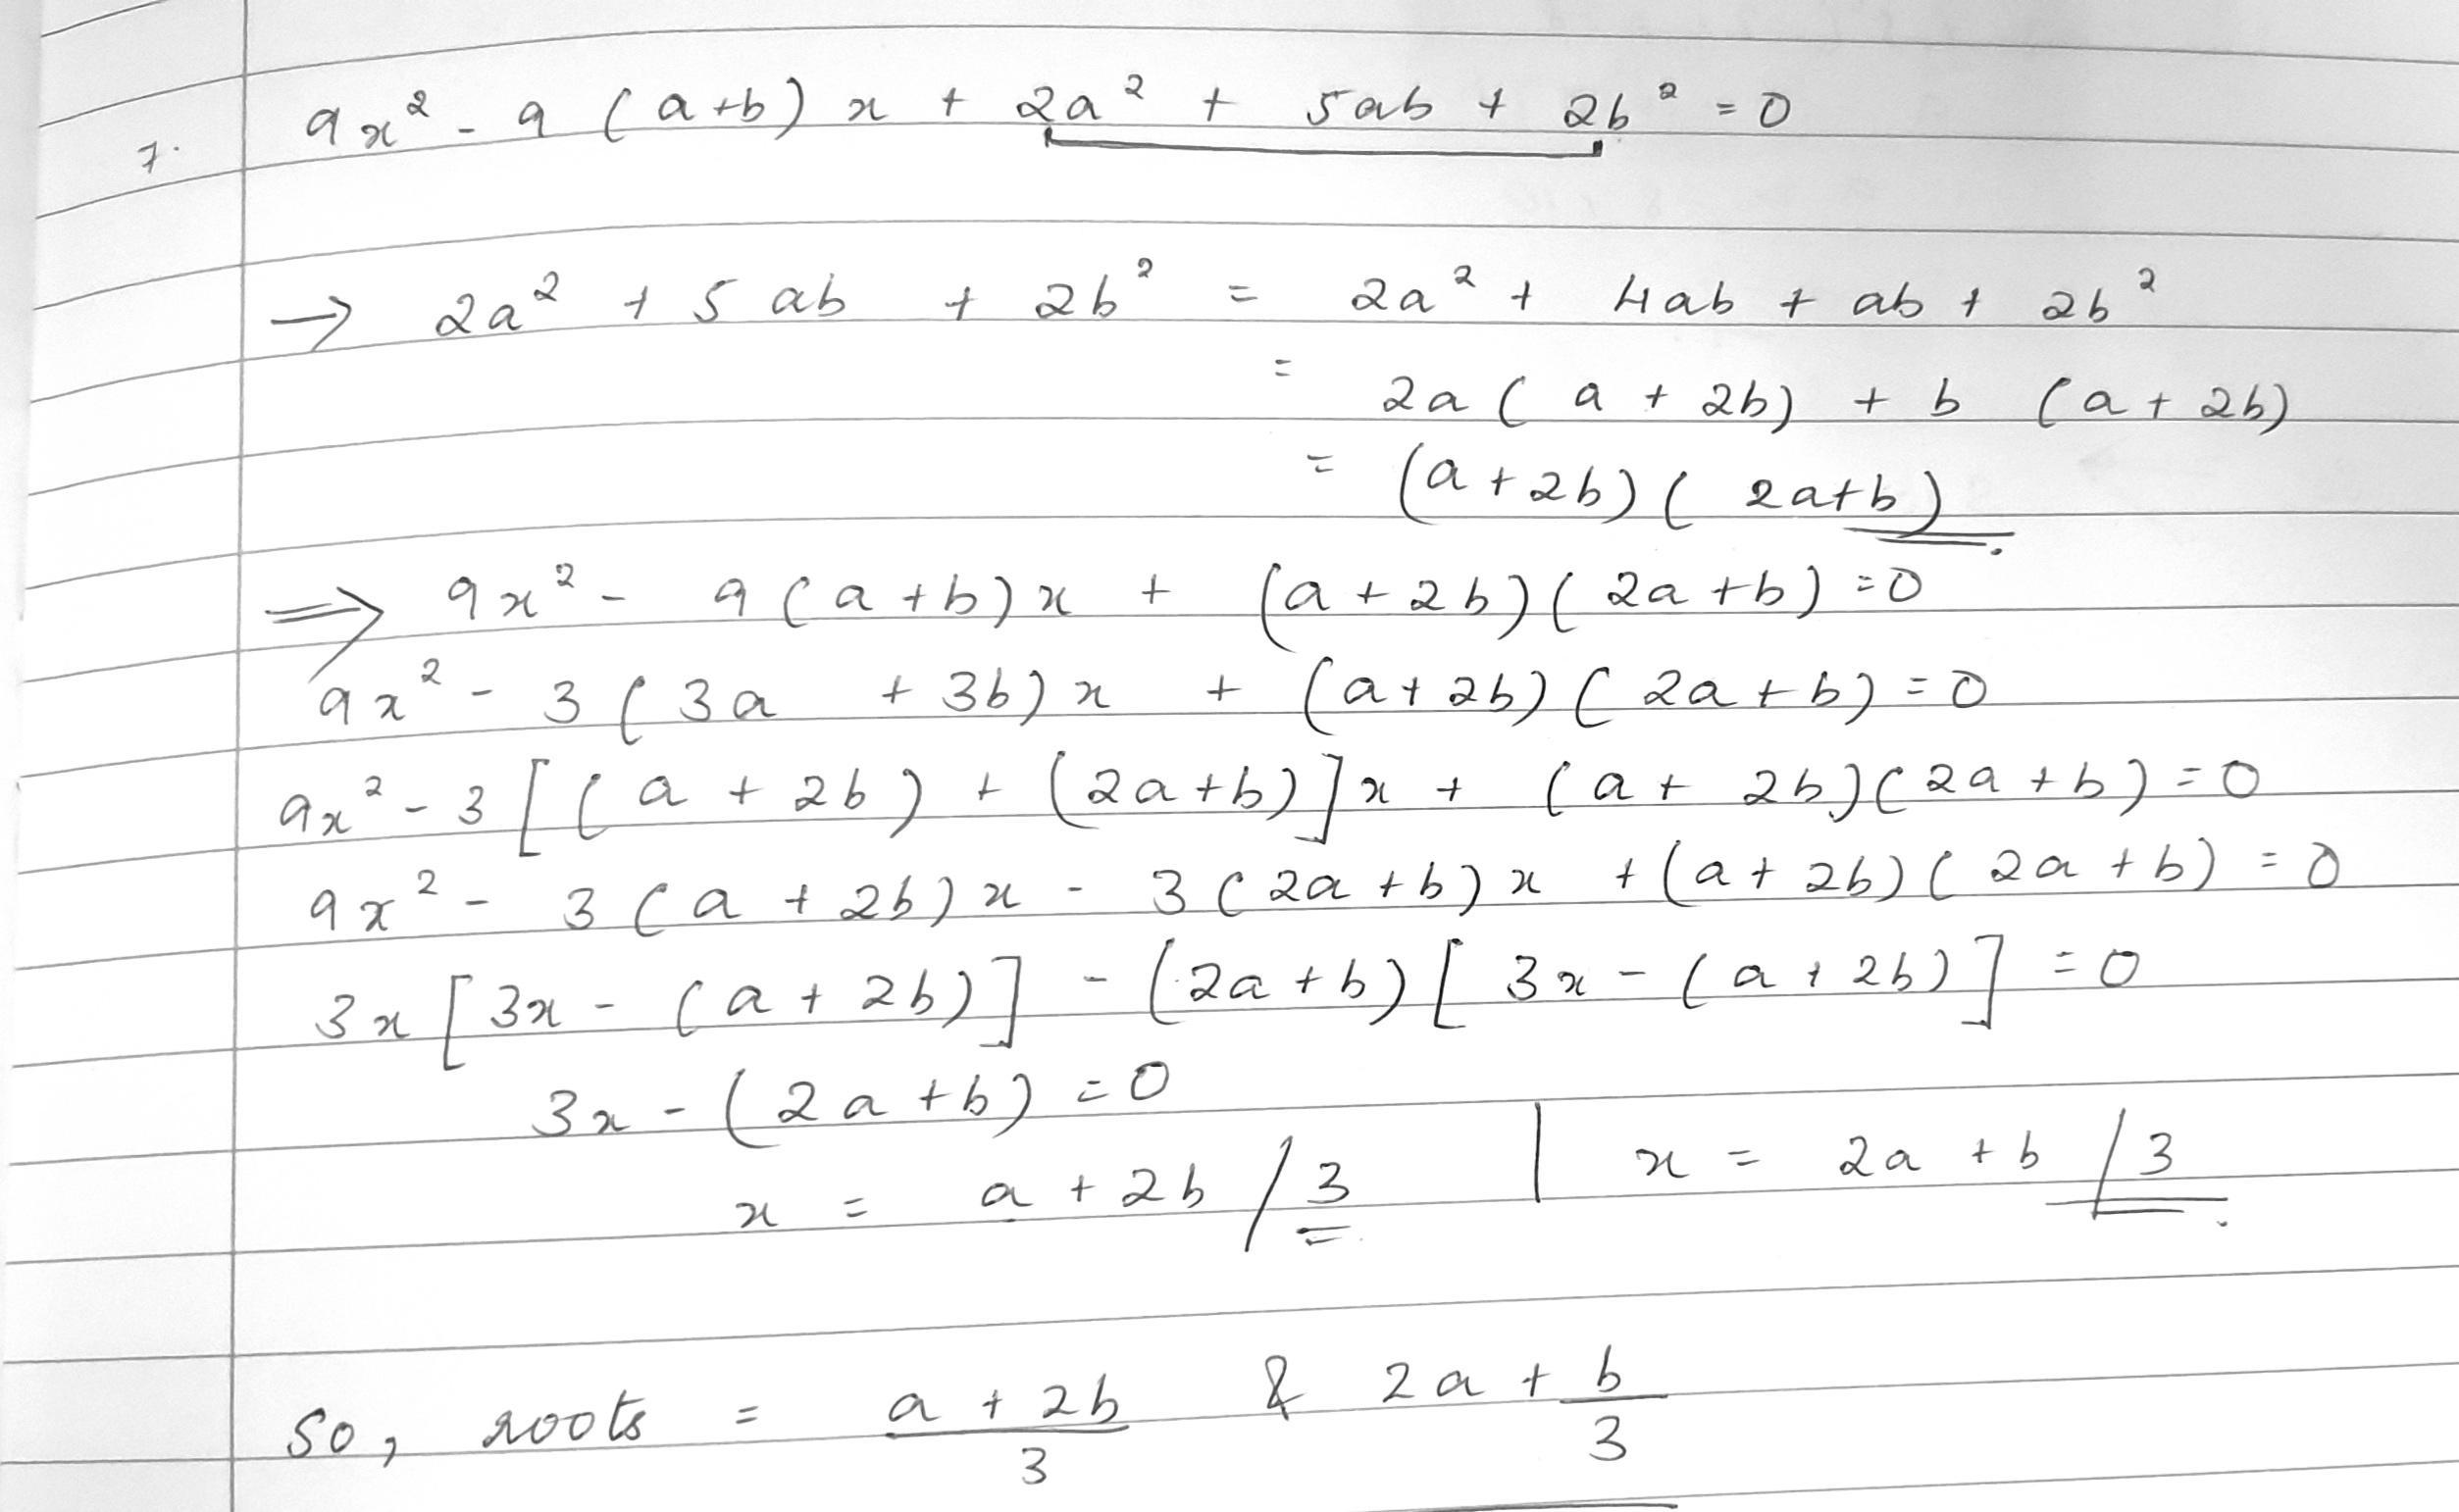 7. 9x² - 9 (a+b) x + 2a² + 5ab + 2b² = 0
→ 2a² + 5ab + 2b² = 2a² + 4ab + ab + 2b²
= 2a (a + 2b) + b (a + 2b)
= (a + 2b) (2a+b)
⇒ 9x² - 9 (a+b) x + (a + 2b) (2a+b) = 0
9x² - 3 (3a + 3b) x + (a + 2b) (2a + b) = 0
9x² - 3 [(a + 2b) + (2a+b)] x + (a + 2b) (2a + b) = 0
9x² - 3 (a + 2b) x - 3 (2a + b) x + (a + 2b) (2a + b) = 0
3x [3x - (a + 2b)] - (2a + b) [3x - (a + 2b)] = 0
3x - (2a + b) = 0
x = a + 2b / 3 | x = 2a + b / 3
So, roots = a + 2b / 3 & 2a + b / 3